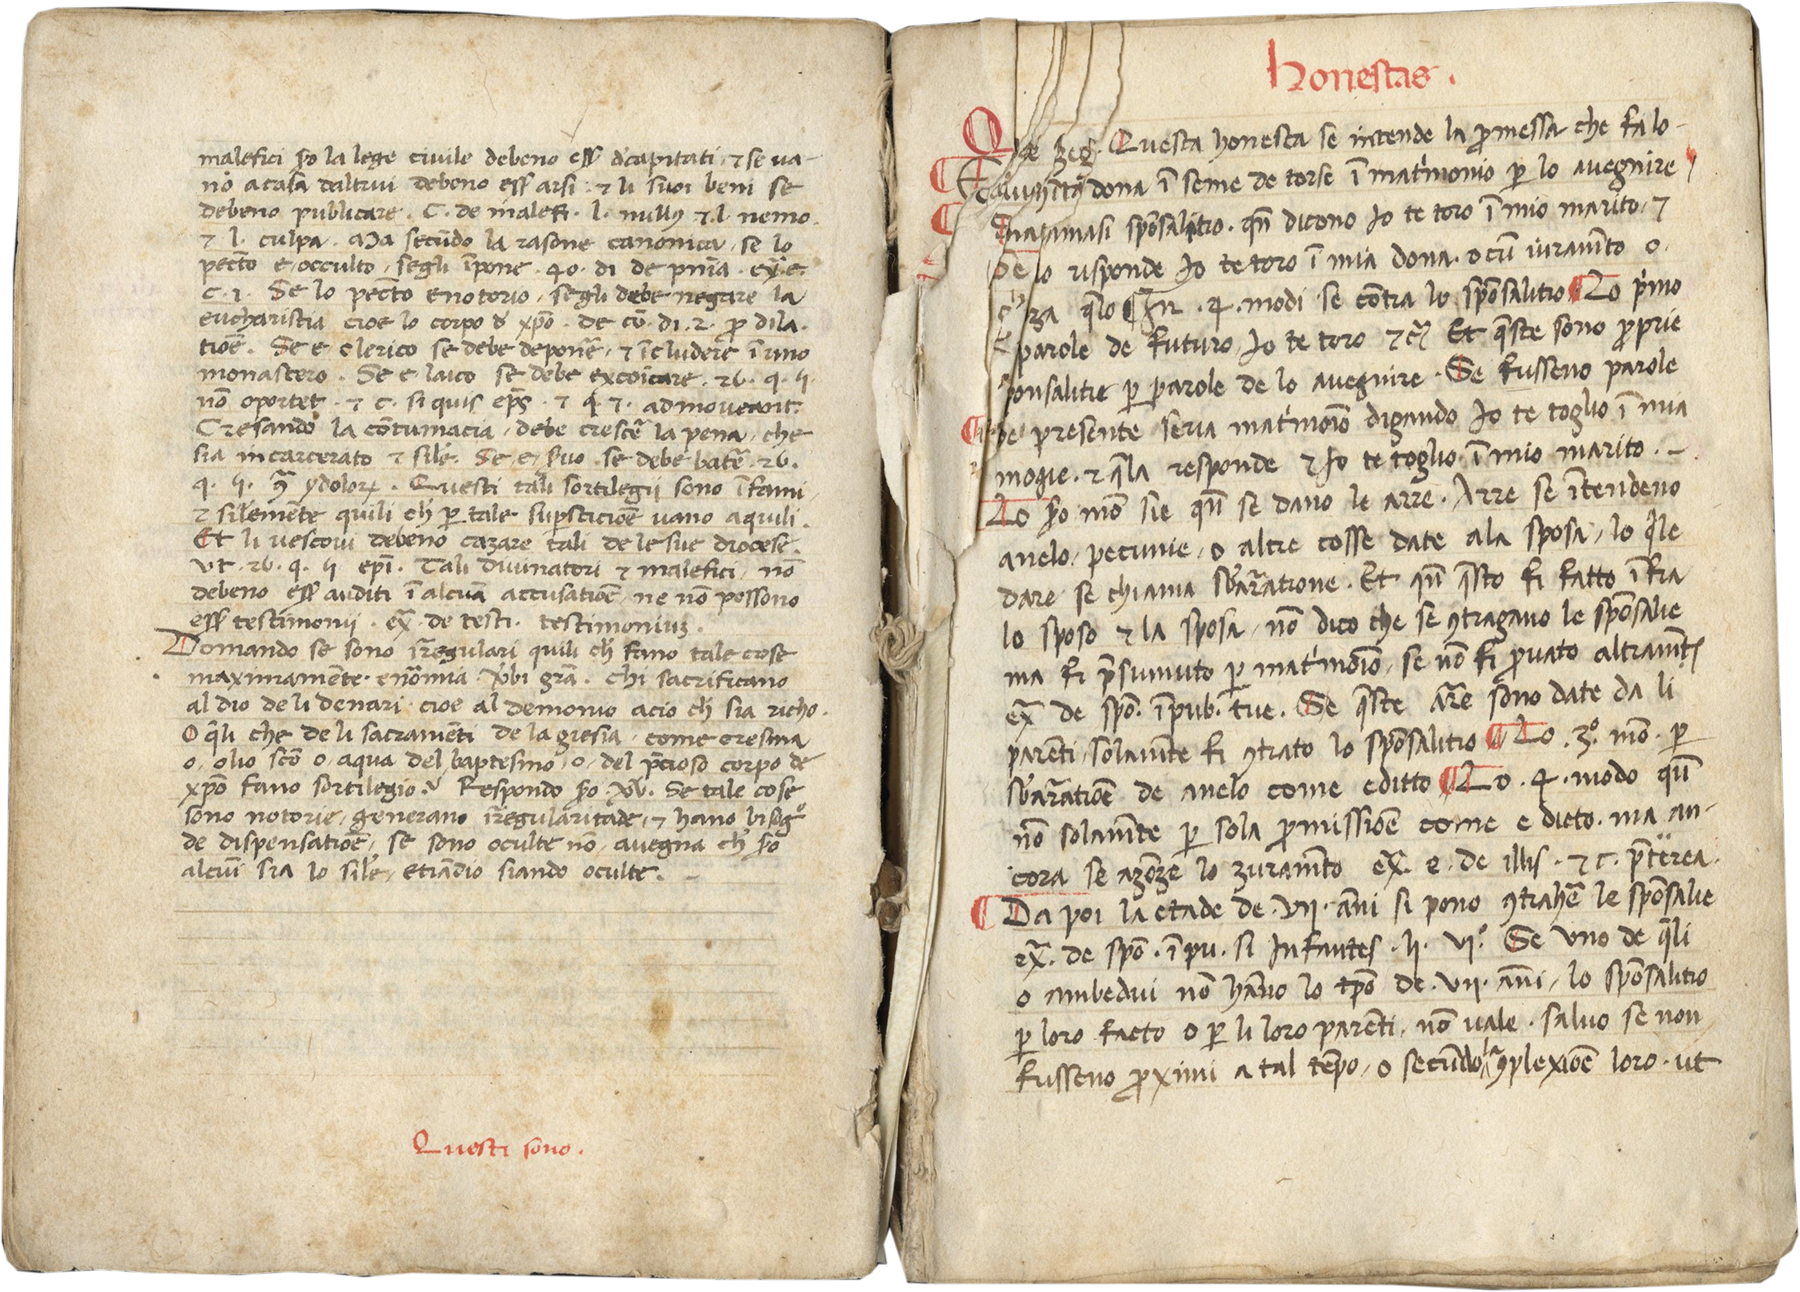 malefici so la lege civile debeno eēē dcapitati · ⁊ se va-
nō a casa daltrui debeno eēē arsi · ⁊ li suoi beni se
debeno publicare . C. de malefi. l. nullꝰ ⁊ l. nemo.
⁊ l. culpa. Ma secūdo la rasone canonica, se lo
pecto e occulto, segli īpone . 40. di de pnīa . ex̄. e.
c. 1. Se lo pecto e notorio, segli debe negare la
eucharistia cioe lo corpo d xp̄o. de cō. di. 2. p̄ dila.
tiōe. Se e clerico se debe deponē, ⁊ īcludere ī uno
monastero. Se e laico se debe excoīcare. 26. q. 5.
nō oportet. ⁊ c. si quis ep̄s. ⁊ q. 7. admoveant.
Cresando la cōtumacia, debe crescē la pena, che
sia incarcerato ⁊ sile. Se e suo se debe batē. 26.
q. 5. ydolorꝝ. Questi tali sortilegii sono īfami,
⁊ silemēte quili ch̄ ꝑ tale supsticiōe vano a quili.
Et li vescovi debeno cazare tali de le sue diocese.
Vt. 26. q. 5 ep̄i. Tali divinatori ⁊ malefici, nō
debeno eēē auditi ī alcuā accusatiōe, ne nō possono
eēē testimonii. ex̄. de testi. testimoniuꝫ.
Domando se sono irregulari quili ch̄ fano tale cose
maximamēte. enōmia. v̄bi grā. chi sacrificano
al dio de li denari cioe al demonio acio ch̄ sia richo.
O q̄li che de li sacramēti de la giesia, come cresma
o, olio scō o, aqua del baptesmo, o, del p̄cioso corpo de
xp̄o fano sortilegio. Respondo Se tale cose
sono notorie, generano irregularitade, ⁊ hano bisog°
de dispensatiōe, se sono oculte nō, avegna ch̄
alcuī sia lo sile, etiādio siando oculte.
Questi sono.
honestas.
Questa honesta se intende la ꝓmessa che fa lo
dona ī seme de torse ī matīmonio ꝑ lo avegnire
spōsalitio. qn̄ dicono Io te toro ī mio marito, ⁊
lo risponde Io te toro ī mia dona. o cū iuramīto o.
za q̄lo ¶In .4. modi se cōtra lo spōsalitio ¶Lo p̄mo
parole de futuro Io te toro ⁊c̄ Et q̄ste sono ꝓprie
sponsalitie ꝑ parole de lo avegnire. Se fusseno parole
de presente seria matīmōio digando Io te toglio ī mia
mogie. ⁊ q̄la responde ⁊ Io te toglio ī mio marito.
Lo mō sie qn̄ se dano le arre. Arre se ītendeno
anelo, pecunie, o altre cosse date ala sposa, lo q̄le
dare se chiama sb̄aratione. Et qn̄ q̄sto fi fatto īfra
lo sposo ⁊ la sposa, nō dico che se ꝯtragano le spōsalie
ma fi p̄sumuto ꝑ matīmōio, se nō fi ꝓvato altramēte
ex̄ de spō. īpub. tue. Se q̄ste are sono date da li
parēti, solamēte fi ꝯtrato lo spōsalitio ¶Lo .3°. mō. ꝑ
sb̄aratiōe de anelo come e ditto ¶Lo .4. modo qn̄
nō solamēte ꝑ sola ꝓmissiōe come e dicto. ma an-
cora se azōze lo zuramīto ex̄. e. de illis. ⁊ c. p̄terea.
¶Da poi la etade de .vii. ani si pono ꝯtrahē le spōsalie
ex̄. de spō. īpu. si Infantes. li. vi°. Se uno de q̄li
o ambedui nō hāno lo tp̄o de .vii. ani, lo spōsalitio
ꝑ loro facto o ꝑ li loro parēti, nō vale. salvo se non
fusseno ꝓximi a tal tēpo, o secūdo la ꝯplexiōe loro. ut